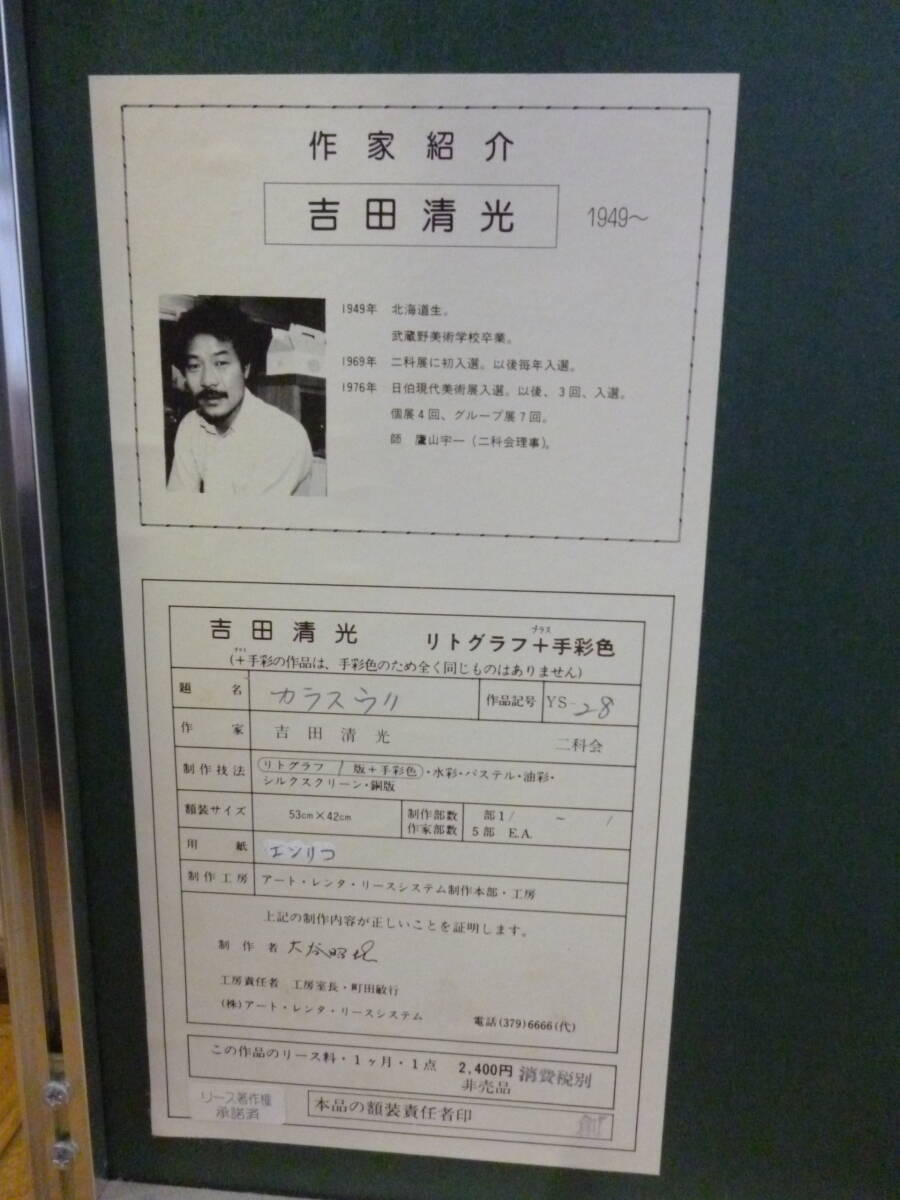 作家紹介
吉田清光 1949～
1949年 北海道生。
武蔵野美術学校卒業。
1969年 二科展に初入選。以後毎年入選。
1976年 日伯現代美術展入選。以後、3回、入選。
個展4回、グループ展7回。
師 鷹山宇一（二科会理事）。
吉田清光 リトグラフ＋手彩色
プラス
プラス
（＋手彩の作品は、手彩色のため全く同じものはありません）
題名 カラスウリ 作品記号 YS-28
作家 吉田清光 二科会
制作技法 リトグラフ 1版＋手彩色・水彩・パステル・油彩・
シルクスクリーン・銅版
額装サイズ 53cm×42cm 制作部数 部1/ ～ /
作家部数 5部 E.A.
用紙 エンリコ
制作工房 アート・レンタ・リースシステム制作本部・工房
上記の制作内容が正しいことを証明します。
制作者
工房責任者 工房室長・町田敏行
(株)アート・レンタ・リースシステム 電話(379)6666(代)
この作品のリース料・1ヶ月・1点 2,400円 消費税別
非売品
リース著作権
承諾済
本品の額装責任者印 創